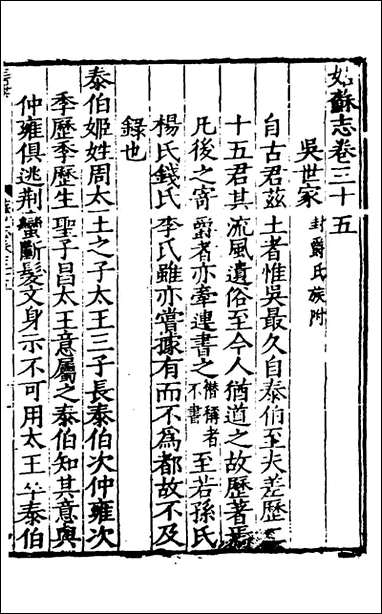 姑蘇志卷三十五
吳世家 封爵氏族附
自古君茲土者惟吳最久自泰伯至夫差歷二
十五君其流風遺俗至今人猶道之故歷著焉
凡後之寄爵者亦牽連書之僭稱者不書至若孫氏
楊氏錢氏李氏雖亦嘗據有而不爲都故不及
錄也
泰伯姬姓周太王之子太王三子長泰伯次仲雍次
季歷季歷生聖子昌太王意屬之泰伯知其意與
仲雍俱逃荆蠻斷髮文身示不可用太王卒泰伯